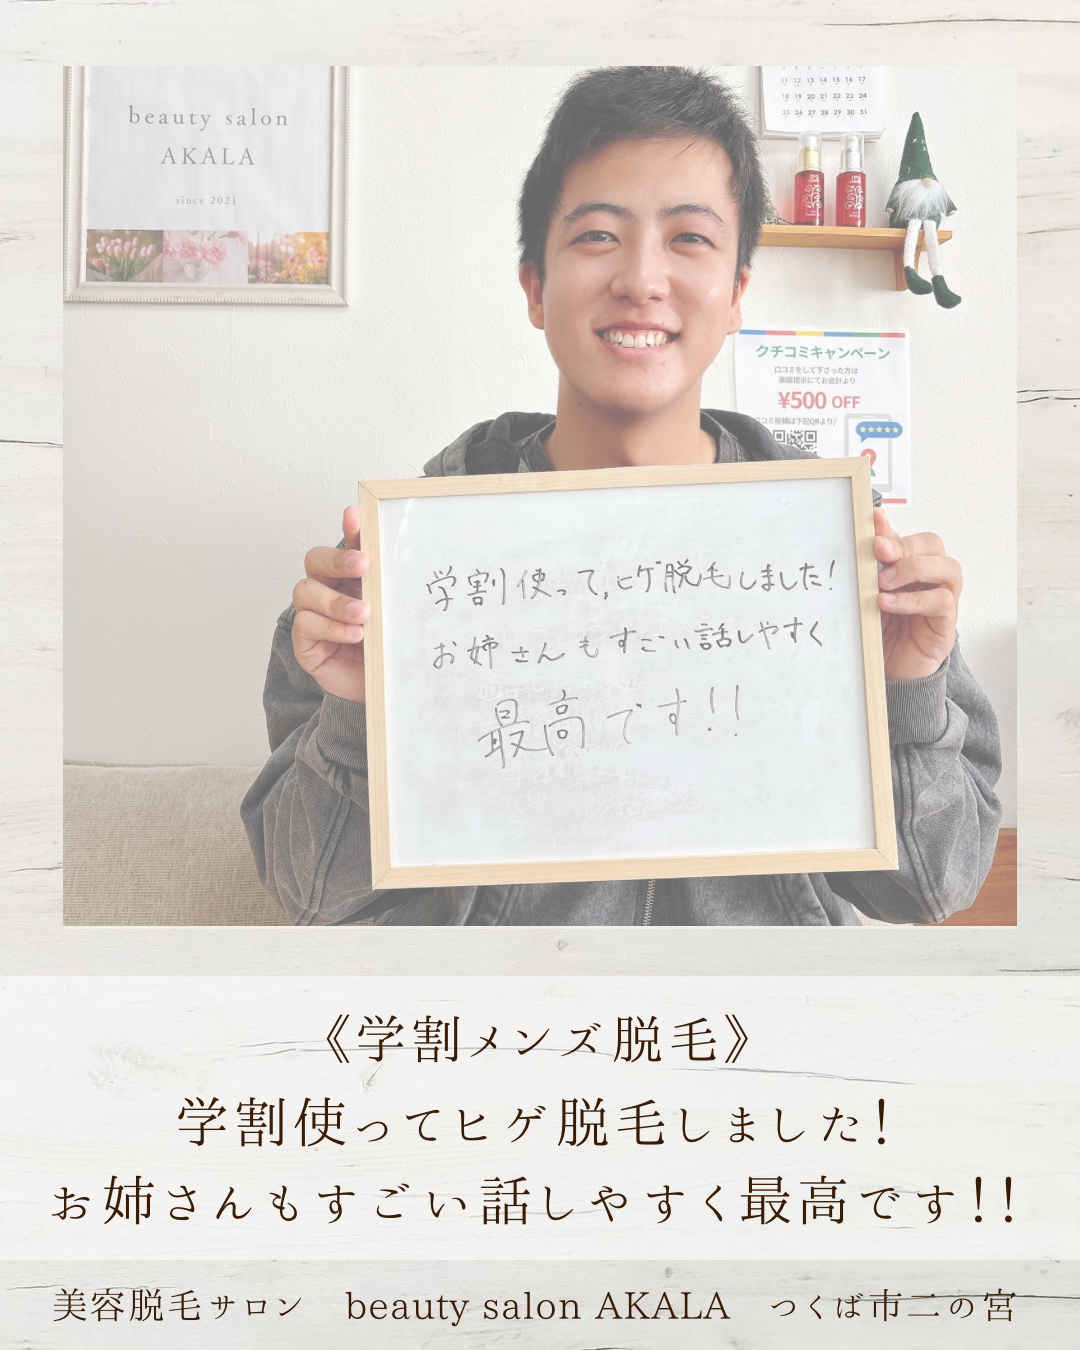 beauty salon
AKALA
since 2021
11 12 13 14 15 16 17
18 19 20 21 22 23 24
25 26 27 28 29 30 31
クチコミキャンペーン
口コミをして下さった方は
画面提示にてお会計より
¥500 OFF
口コミ投稿は下記QRより/
学割使って、ヒゲ脱毛しました!
お姉さんもすごい話しやすく
最高です!!
《学割メンズ脱毛》
学割使ってヒゲ脱毛しました!
お姉さんもすごい話しやすく最高です!!
美容脱毛サロン beauty salon AKALA つくば市二の宮